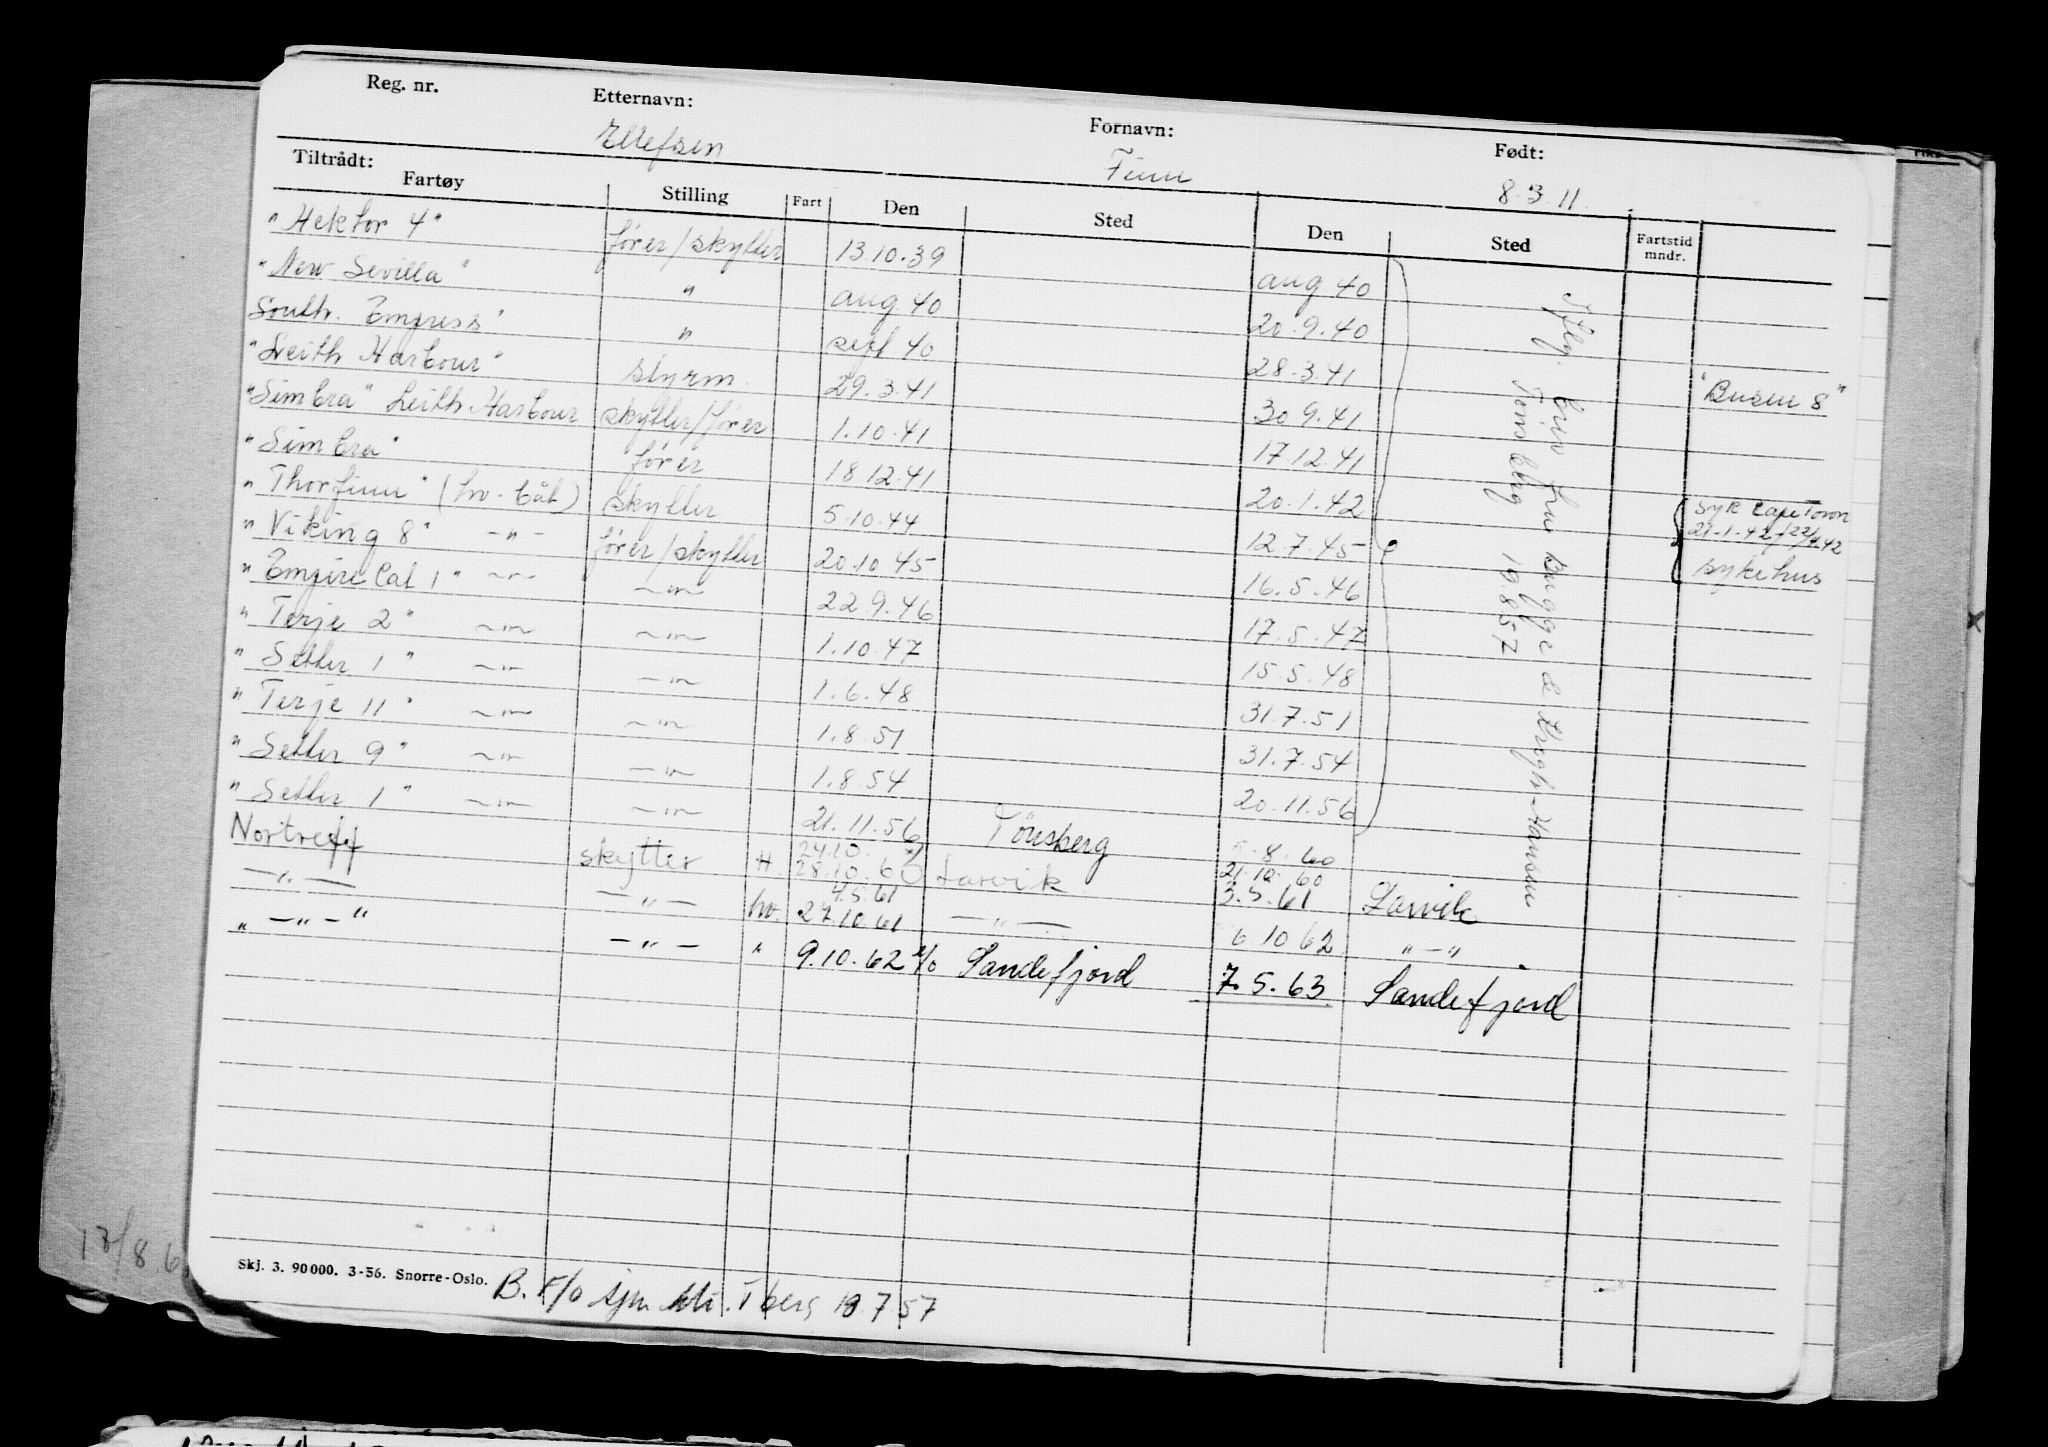 Reg. nr. Etternavn: Fornavn: Født:
Ellefsen Finn 8.3.11.
Tiltrådt:
Fartøy Stilling Fart Den Sted Den Sted Fartstid mndr.
"Hektor 4" fører/skytter 13.10.39 aug 40
"New Sevilla" " aug 40 20.9.40
South. Empress" " sept 40 28.3.41 "Busen 8"
"Leith Harbour" styrm. 29.3.41 30.9.41
"Simbra" Leith Harbour skytter/fører 1.10.41 17.12.41
"Simbra" fører 18.12.41 20.1.42 syk CapeTown
21.1.42/22/4.42
"Thorfinn" (hv-båt) skytter 5.10.44 12.7.45 sykehus
"Viking 8" -"- fører/skytter 20.10.45 16.5.46
"Empire Cat 1" -"- -"- 22.9.46 17.5.47
"Terje 2" -"- -"- 1.10.47 15.5.48
"Setter 1" -"- -"- 1.6.48 31.7.51
"Terje 11" -"- -"- 1.8.51 31.7.54
"Setter 9" -"- -"- 1.8.54 20.11.56
"Setter 1" -"- -"- 21.11.56 Tönsberg 8.60
Ifflg. brev fra Bugge & Krogh-Hansen
Tønsberg 19.8.57
24.10. 21.10.60
Nortreff skytter H 28.10.60 Larvik 3.5.61 Larvik
4.5.61
-"- -"- hv. 27.10.61 -"- 6.10.62 "-"
"-"-" -"- " 9.10.62 Sandefjord 7.5.63. Sandefjord
17/8 6
Skj. 3. 90000. 3-56. Snorre-Oslo.
B. F/o sjm. T berg 18 7 57